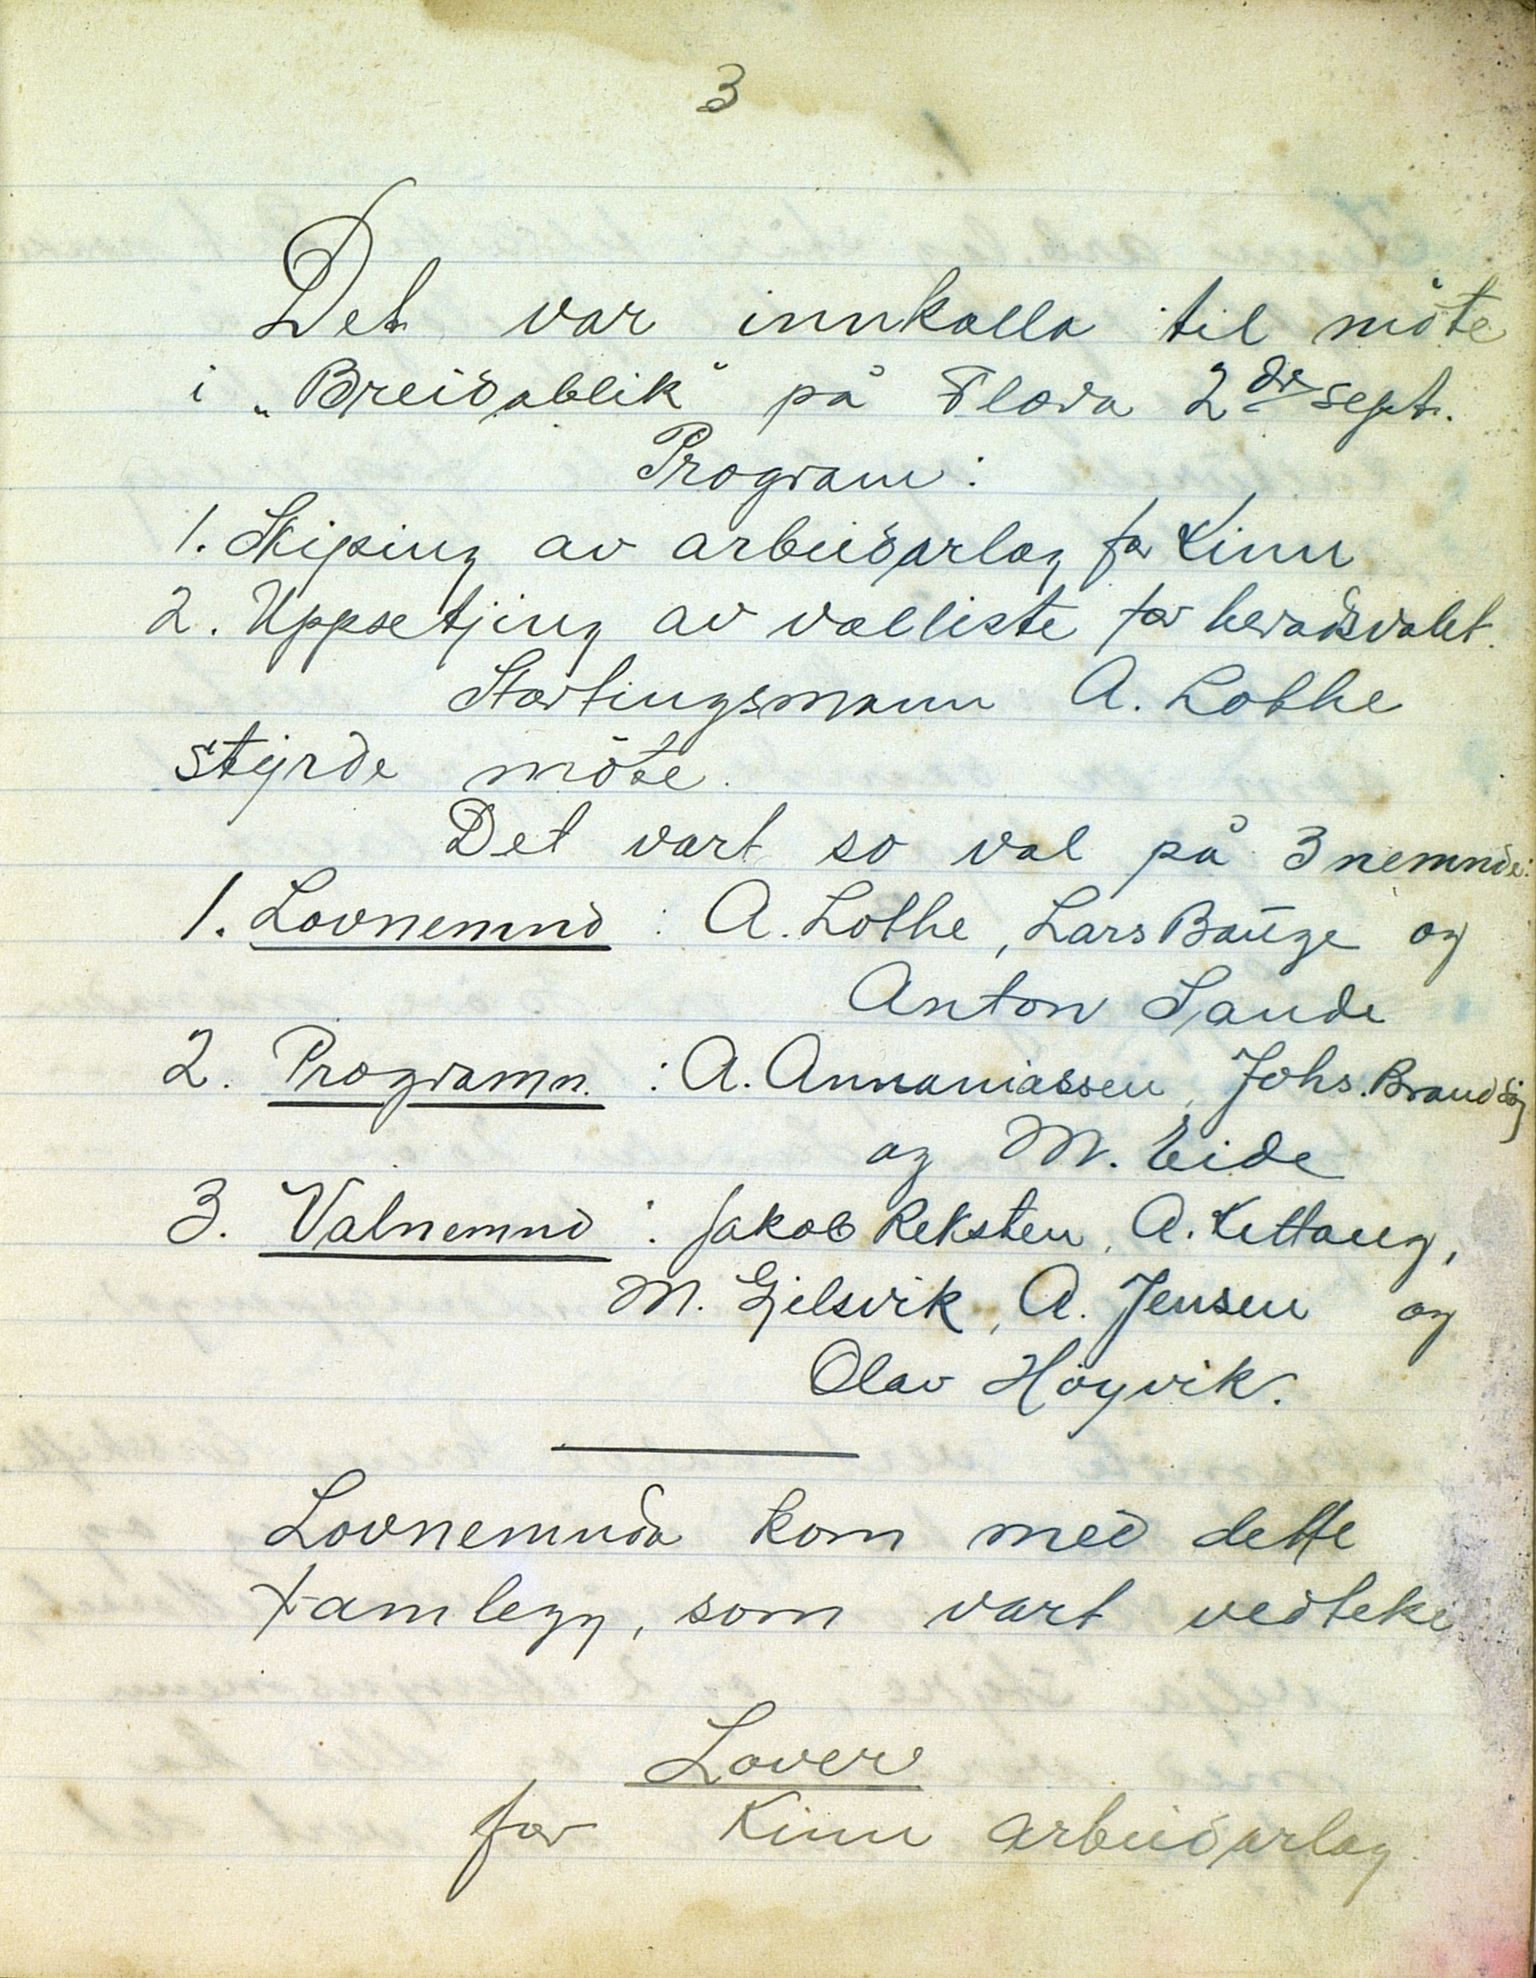 3
Det var innkalla til möte
i „Breidablik" på Flora 2dr sept.
Program:
1. Skiping av arbeidarlag for Kinn
2. Uppsetjing av valliste for heradsvalet.
Stortingsmann A. Lothe
styrde möte.
Det vart so val på 3 nemnde:
1. Lovnemnd : A. Lothe, Lars Bauge og
Anton Sande
2. Programn. : A. Annaniassen, Johs. Brandsöy
og M. Eide
3. Valnemnd : Jakob Reksten, A. Kettang,
M. Gjelsvik, A. Jensen og
Olav Höyvik.
Lovnemnda kom med dette
framlegg, som vart vedteke
Lover
for Kinn arbeidarlag